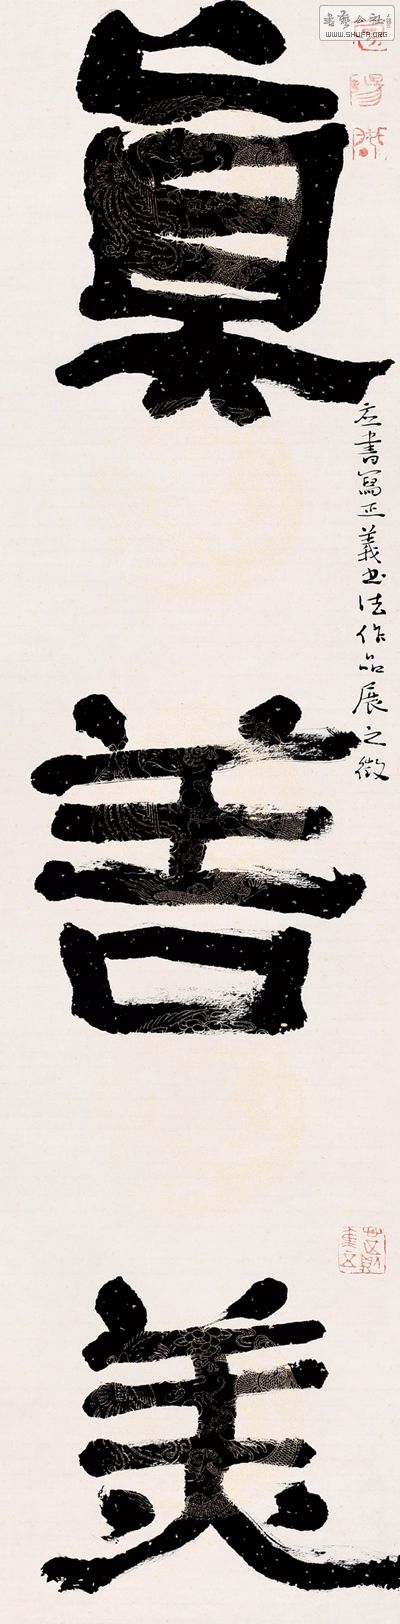 真善美
应書寫正義书法作品展之徵
書藝公社
www.SHUFA.ORG